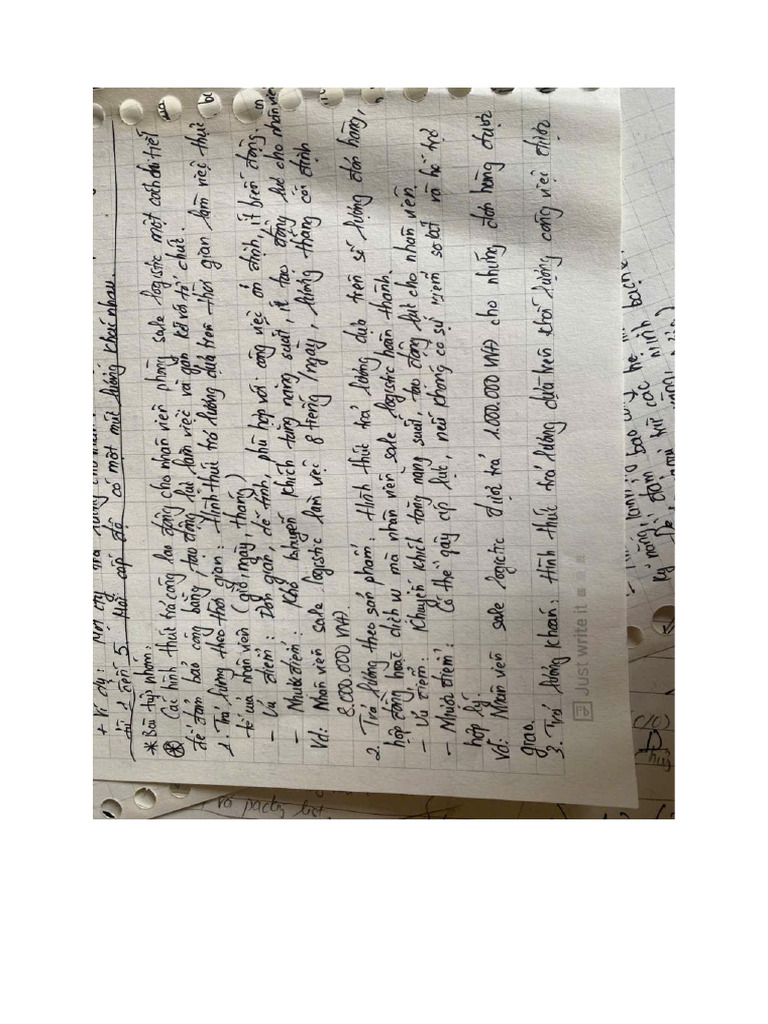 + Ví dụ:
từ 1 đến 5. Mỗi cấp độ có một mức lương khác nhau.
* Bài tập nhóm:
* Các hình thức trả công lao động cho nhân viên phòng sale logistic một cách chi tiết
để đảm bảo công bằng, tạo động lực làm việc và gắn kết với tổ chức.
1. Trả lương theo thời gian: Hình thức trả lương dựa trên thời gian làm việc thực
tế của nhân viên (giờ, ngày, tháng)
- Ưu điểm: Đơn giản, dễ tính, phù hợp với công việc ổn định, ít biến động.
- Nhược điểm: Khó khuyến khích tăng năng suất, ít tạo động lực cho nhân viên
Vd: Nhân viên sale logistic làm việc 8 tiếng/ngày, lương tháng cố định
8.000.000 VNĐ.
2. Trả lương theo sản phẩm: Hình thức trả lương dựa trên số lượng đơn hàng,
hợp đồng hoặc dịch vụ mà nhân viên sale logistic hoàn thành.
- Ưu điểm: Khuyến khích tăng năng suất, tạo động lực cho nhân viên.
- Nhược điểm: Có thể gây áp lực, nếu không có sự kiểm soát và hỗ trợ
hợp lý.
Vd: Nhân viên sale logistic được trả 1.000.000 VNĐ cho những đơn hàng được
giao.
3. Trả lương khoán: Hình thức trả lương dựa trên khối lượng công việc được
Just write it
và packing list.